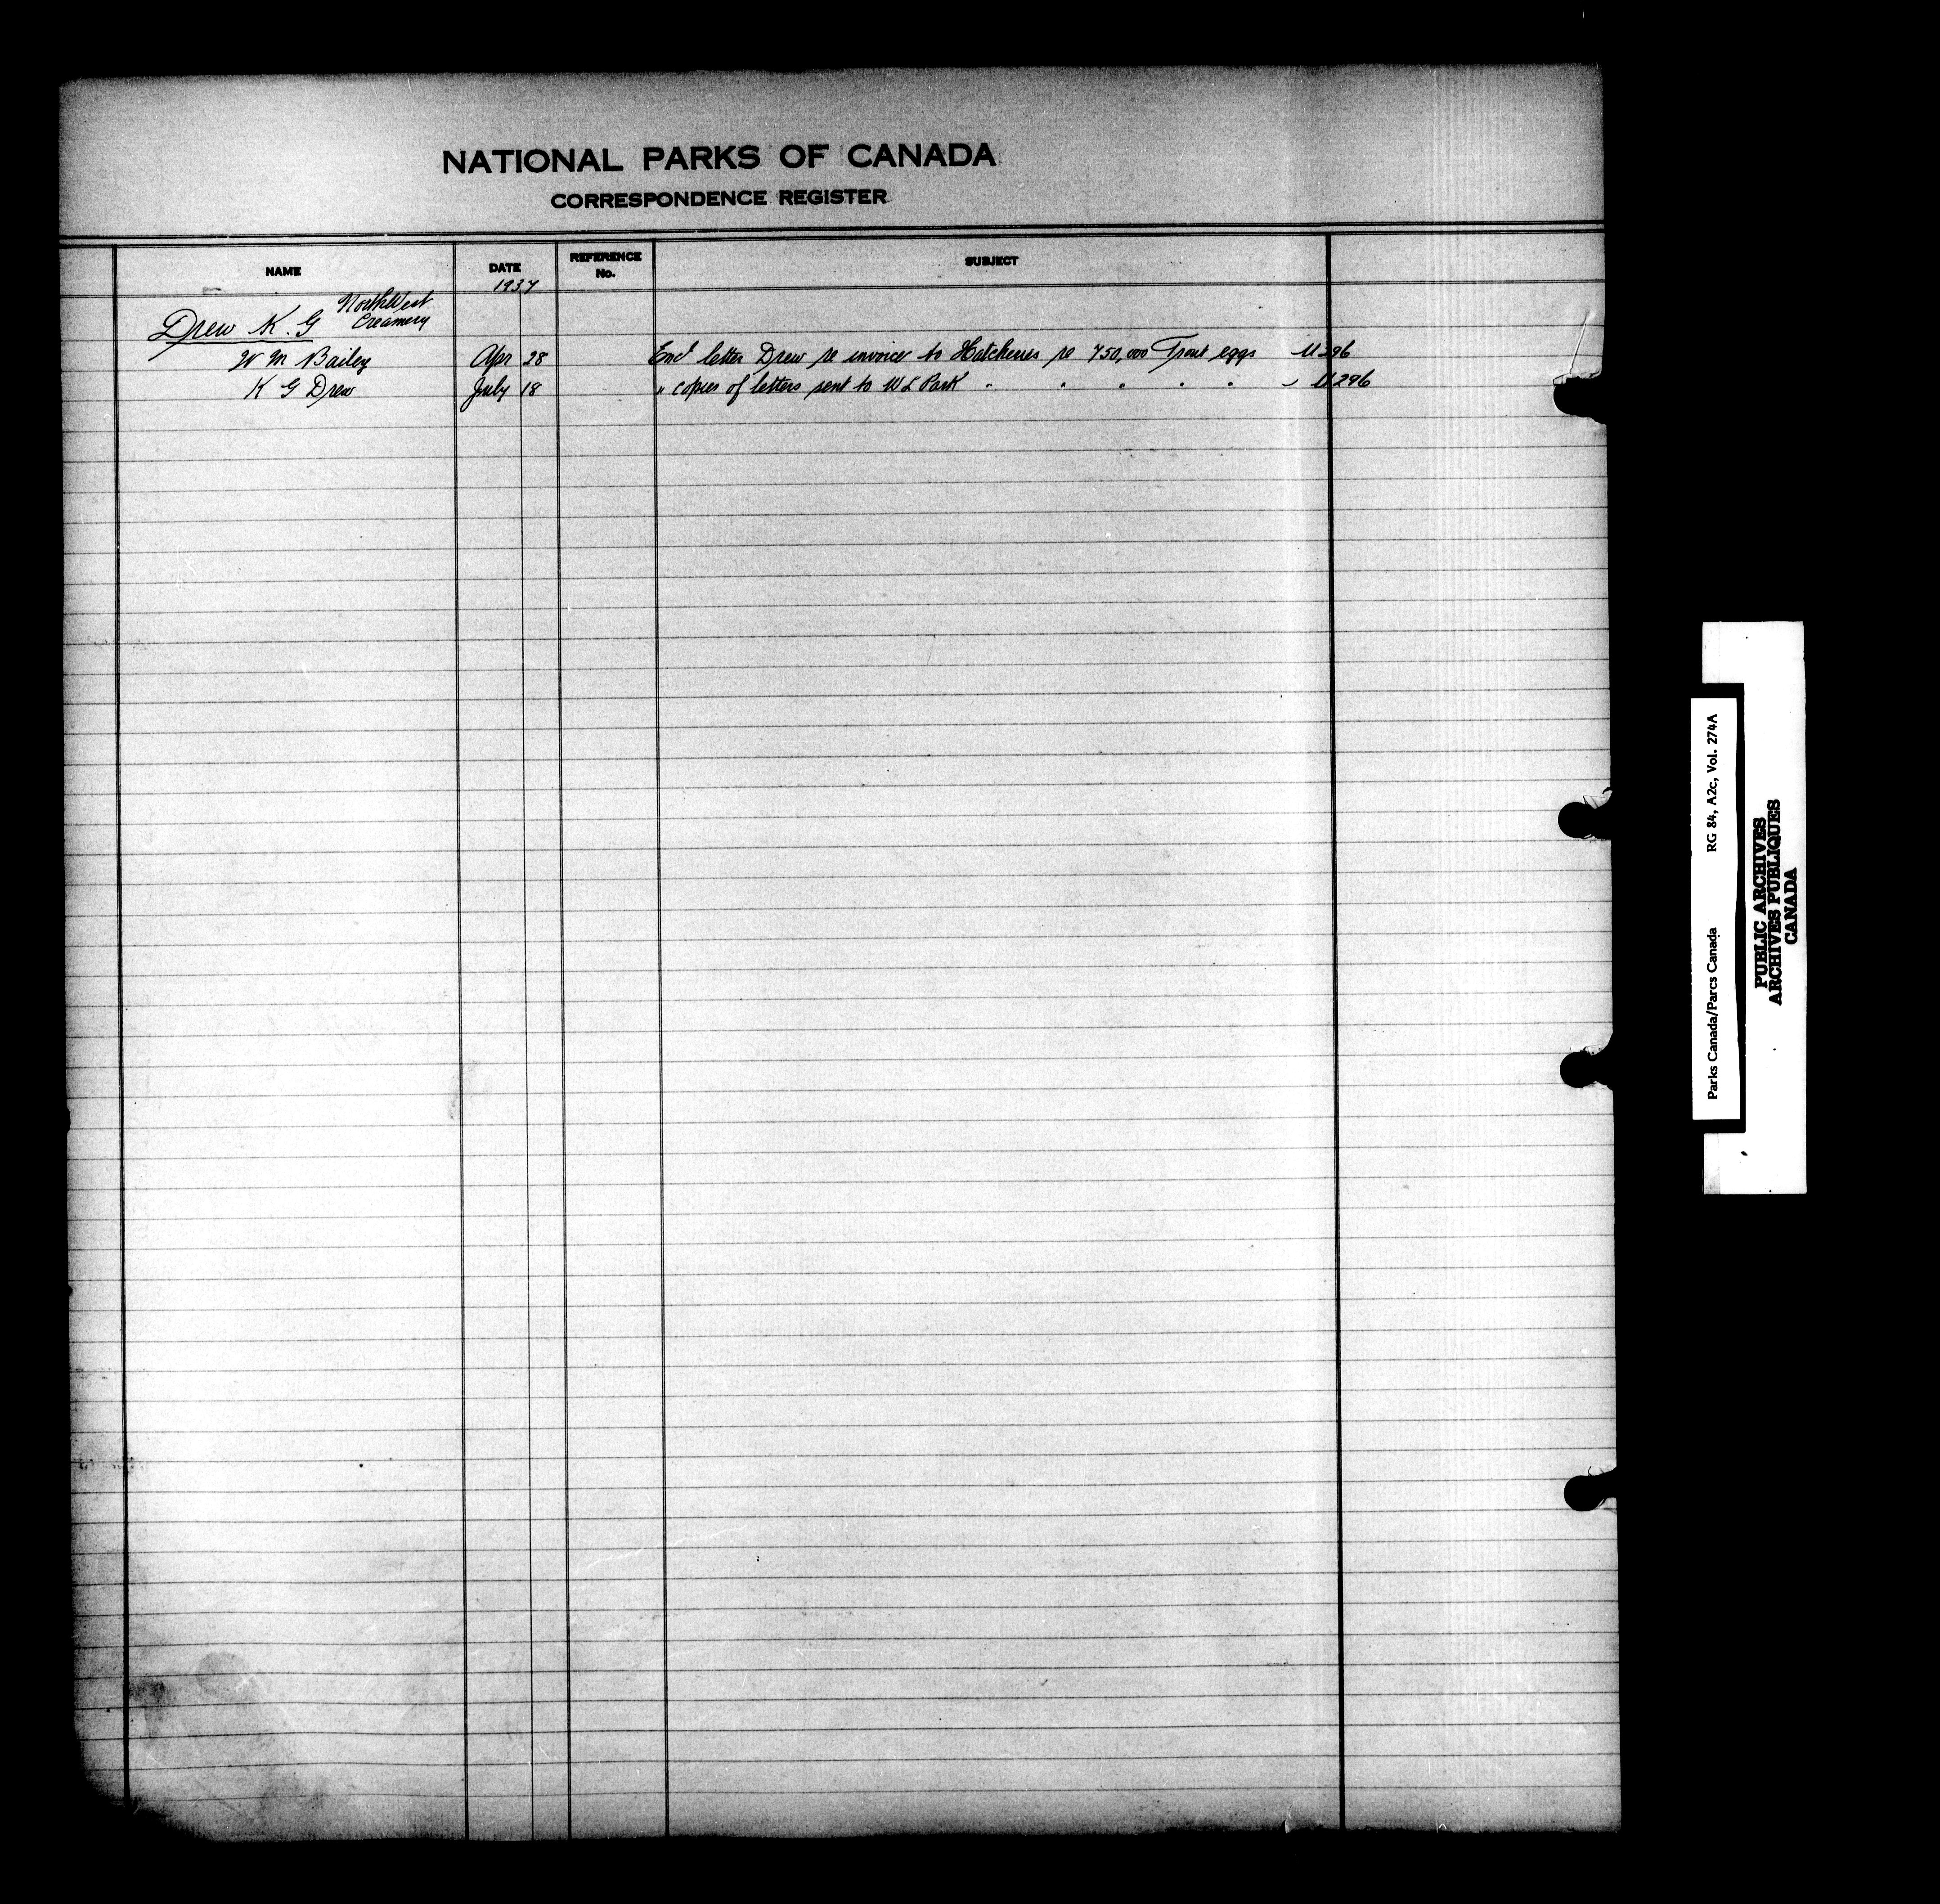 NATIONAL PARKS OF CANADA
CORRESPONDENCE REGISTER
NAME DATE REFERENCE No. SUBJECT
1937
Drew K. G NorthWest Creamery
W M Bailey Apr 28 Encl letter Drew re invoice to Hatcheries re 750,000 Trout eggs U296
K G Drew July 18 " copies of letters sent to W L Park " " " " " " U296
Parks Canada/Parcs Canada RG 84, A2c, Vol. 274A
PUBLIC ARCHIVES
ARCHIVES PUBLIQUES
CANADA